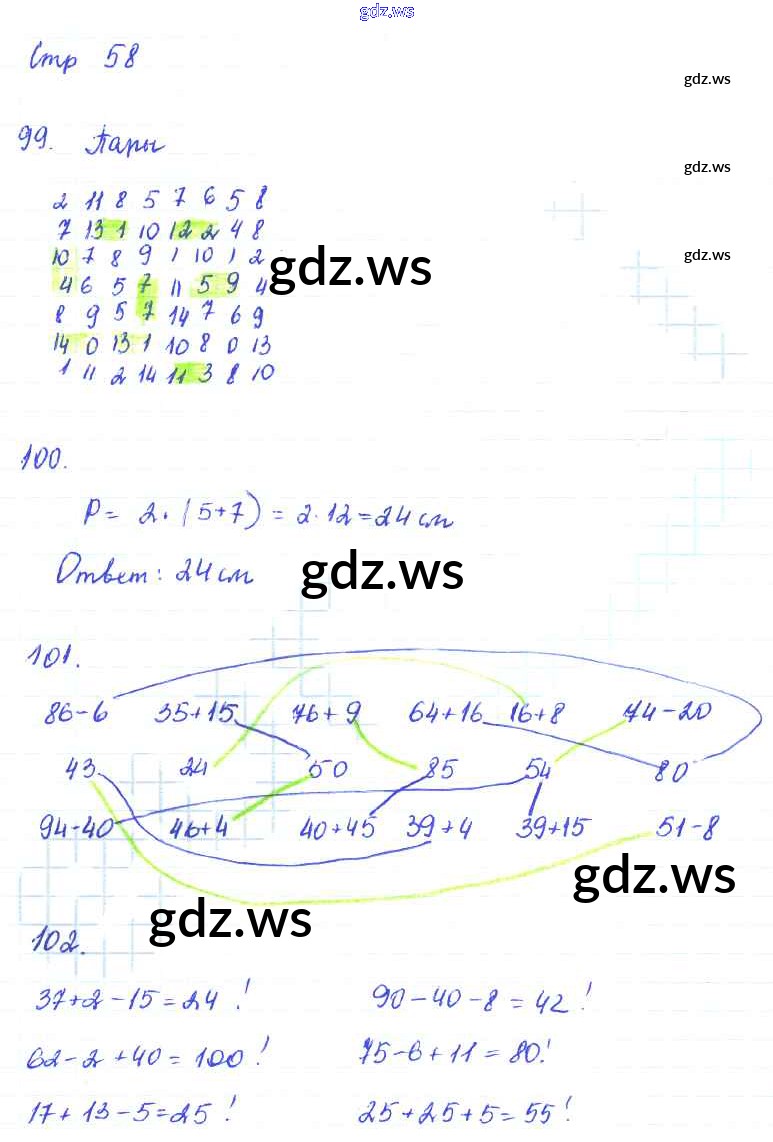 gdz.ws
Стр 58
gdz.ws
99. Пары
gdz.ws
2 11 8 5 7 6 5 8
7 13 1 10 12 2 4 8
10 7 8 9 1 10 1 2
gdz.ws
gdz.ws
4 6 5 7 11 5 9 4
8 9 5 7 14 7 6 9
14 0 13 1 10 8 0 13
1 11 2 14 11 3 8 10
100.
P = 2 · (5+7) = 2·12 = 24 см
Ответ: 24 см
gdz.ws
101.
86-6 35+15 76+9 64+16 16+8 74-20
43 24 50 85 54 80
94-40 46+4 40+45 39+4 39+15 51-8
gdz.ws
gdz.ws
102.
37+2-15=24! 90-40-8=42!
62-2+40=100! 75-6+11=80!
17+13-5=25! 25+25+5=55!